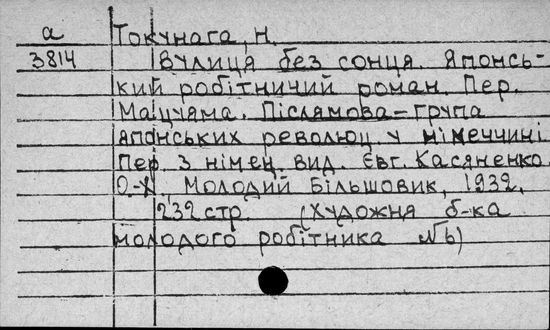 а Токунага, Н.
3814 Вулиця без сонця. Японсь-
кий робітничий роман. Пер.
Мацуяма. Післямова – група
японських революц. у німеччині
Пер. з німец. вид. Євг. Касяненко
О.-Х., Молодий Більшовик, 1932.
232 стр. (Художня б-ка
молодого робітника №6)